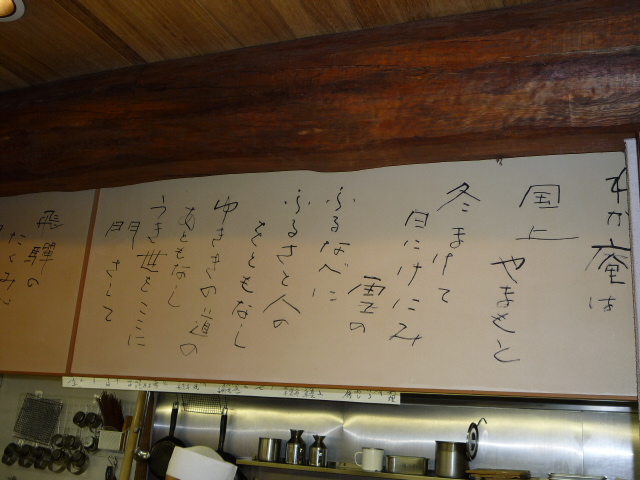 わが庵は
国上
やまもと
冬まけて
日にけにみ
雪の
ふるなべに
ふるさと人の
をともなし
ゆききの道の
あともなし
うき世をここに
門さして
飛騨の
たくみ